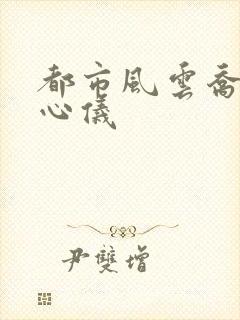 都市風雲喬
心儀
尹雙增